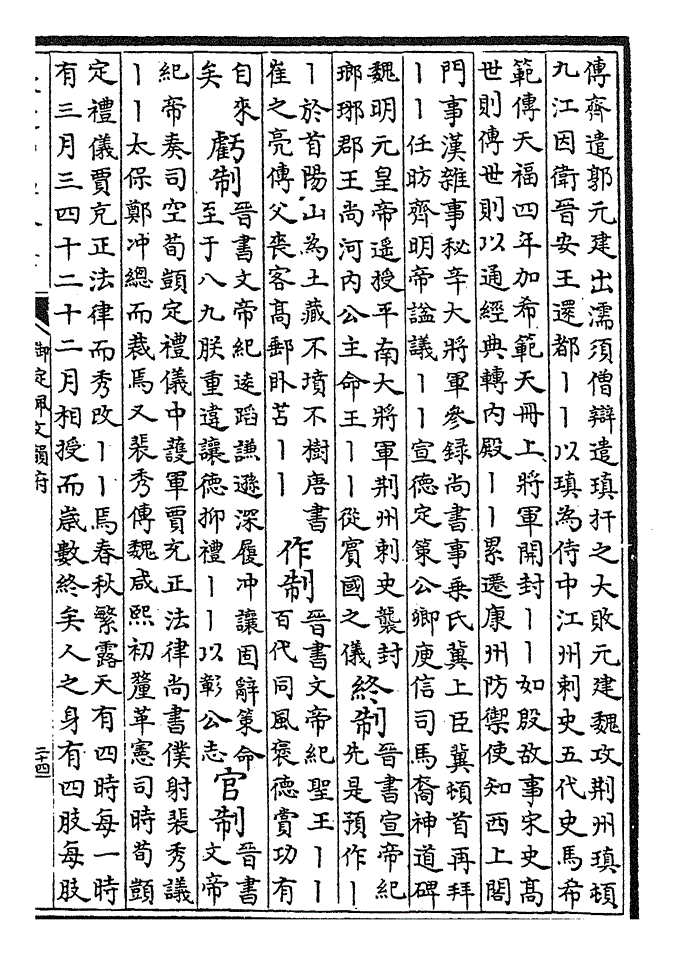 傳齊遣郭元建出濡須僧辯遣瑱扞之大敗元建魏攻荆州瑱頓
九江因衛晉安王還都丨丨以瑱為侍中江州刺史五代史馬希
範傳天福四年加希範天冊上將軍開封丨丨如殷故事宋史髙
世則傳世則以通經典轉内殿丨丨累遷康州防禦使知西上閤
門事漢雜事秘辛大將軍參録尚書事乗氏冀上臣冀頓首再拜
丨丨任昉齊明帝諡議丨丨宣德定策公卿庾信司馬裔神道碑
魏明元皇帝遥授平南大將軍荆州刺史襲封
瑯琊郡王尚河内公主命王丨丨從賔國之儀
終制
晉書宣帝紀
先是預作丨
丨於首陽山為土藏不墳不樹唐書
崔之亮傳父喪客髙郵卧苫丨丨
作制
晉書文帝紀聖王丨丨
百代同風褒德賞功有
自來
矣
虧制
晉書文帝紀逺蹈謙遜深履冲讓固辭策命
至于八九朕重違讓德抑禮丨丨以彰公志
官制
晉書
文帝
紀帝奏司空荀顗定禮儀中護軍賈充正法律尚書僕射裴秀議
丨丨太保鄭冲總而裁焉又裴秀傳魏咸熙初釐革憲司時荀顗
定禮儀賈充正法律而秀改丨丨焉春秋繁露天有四時每一時
有三月三四十二十二月相授而歳數終矣人之身有四肢每肢
御定佩文韻府
二十四